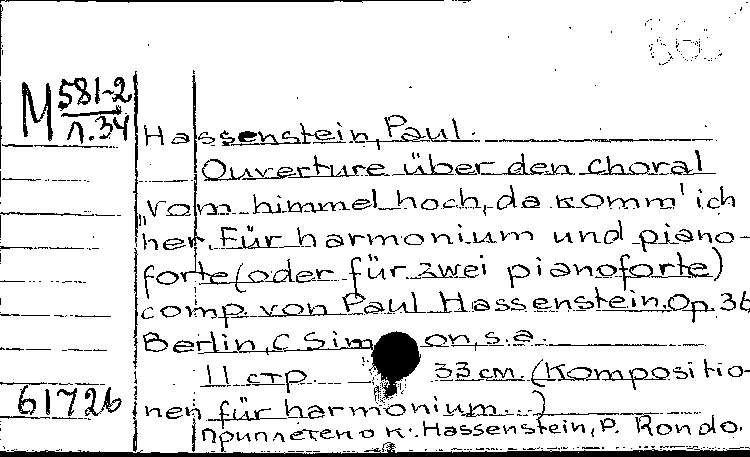 М 581-2
л. 34
Hassenstein, Paul.
Ouverture über den choral
„Vom himmel hoch, da komm' ich
her. Für harmonium und piano-
forte (oder für zwei pianoforte)
comp. von Paul Hassenstein. Op. 36
Berlin, C Sim on, s.a.
11 стр. 33 см. (Kompositio-
61726 nen für harmonium...)
Приплетено к: Hassenstein, P. Rondo.